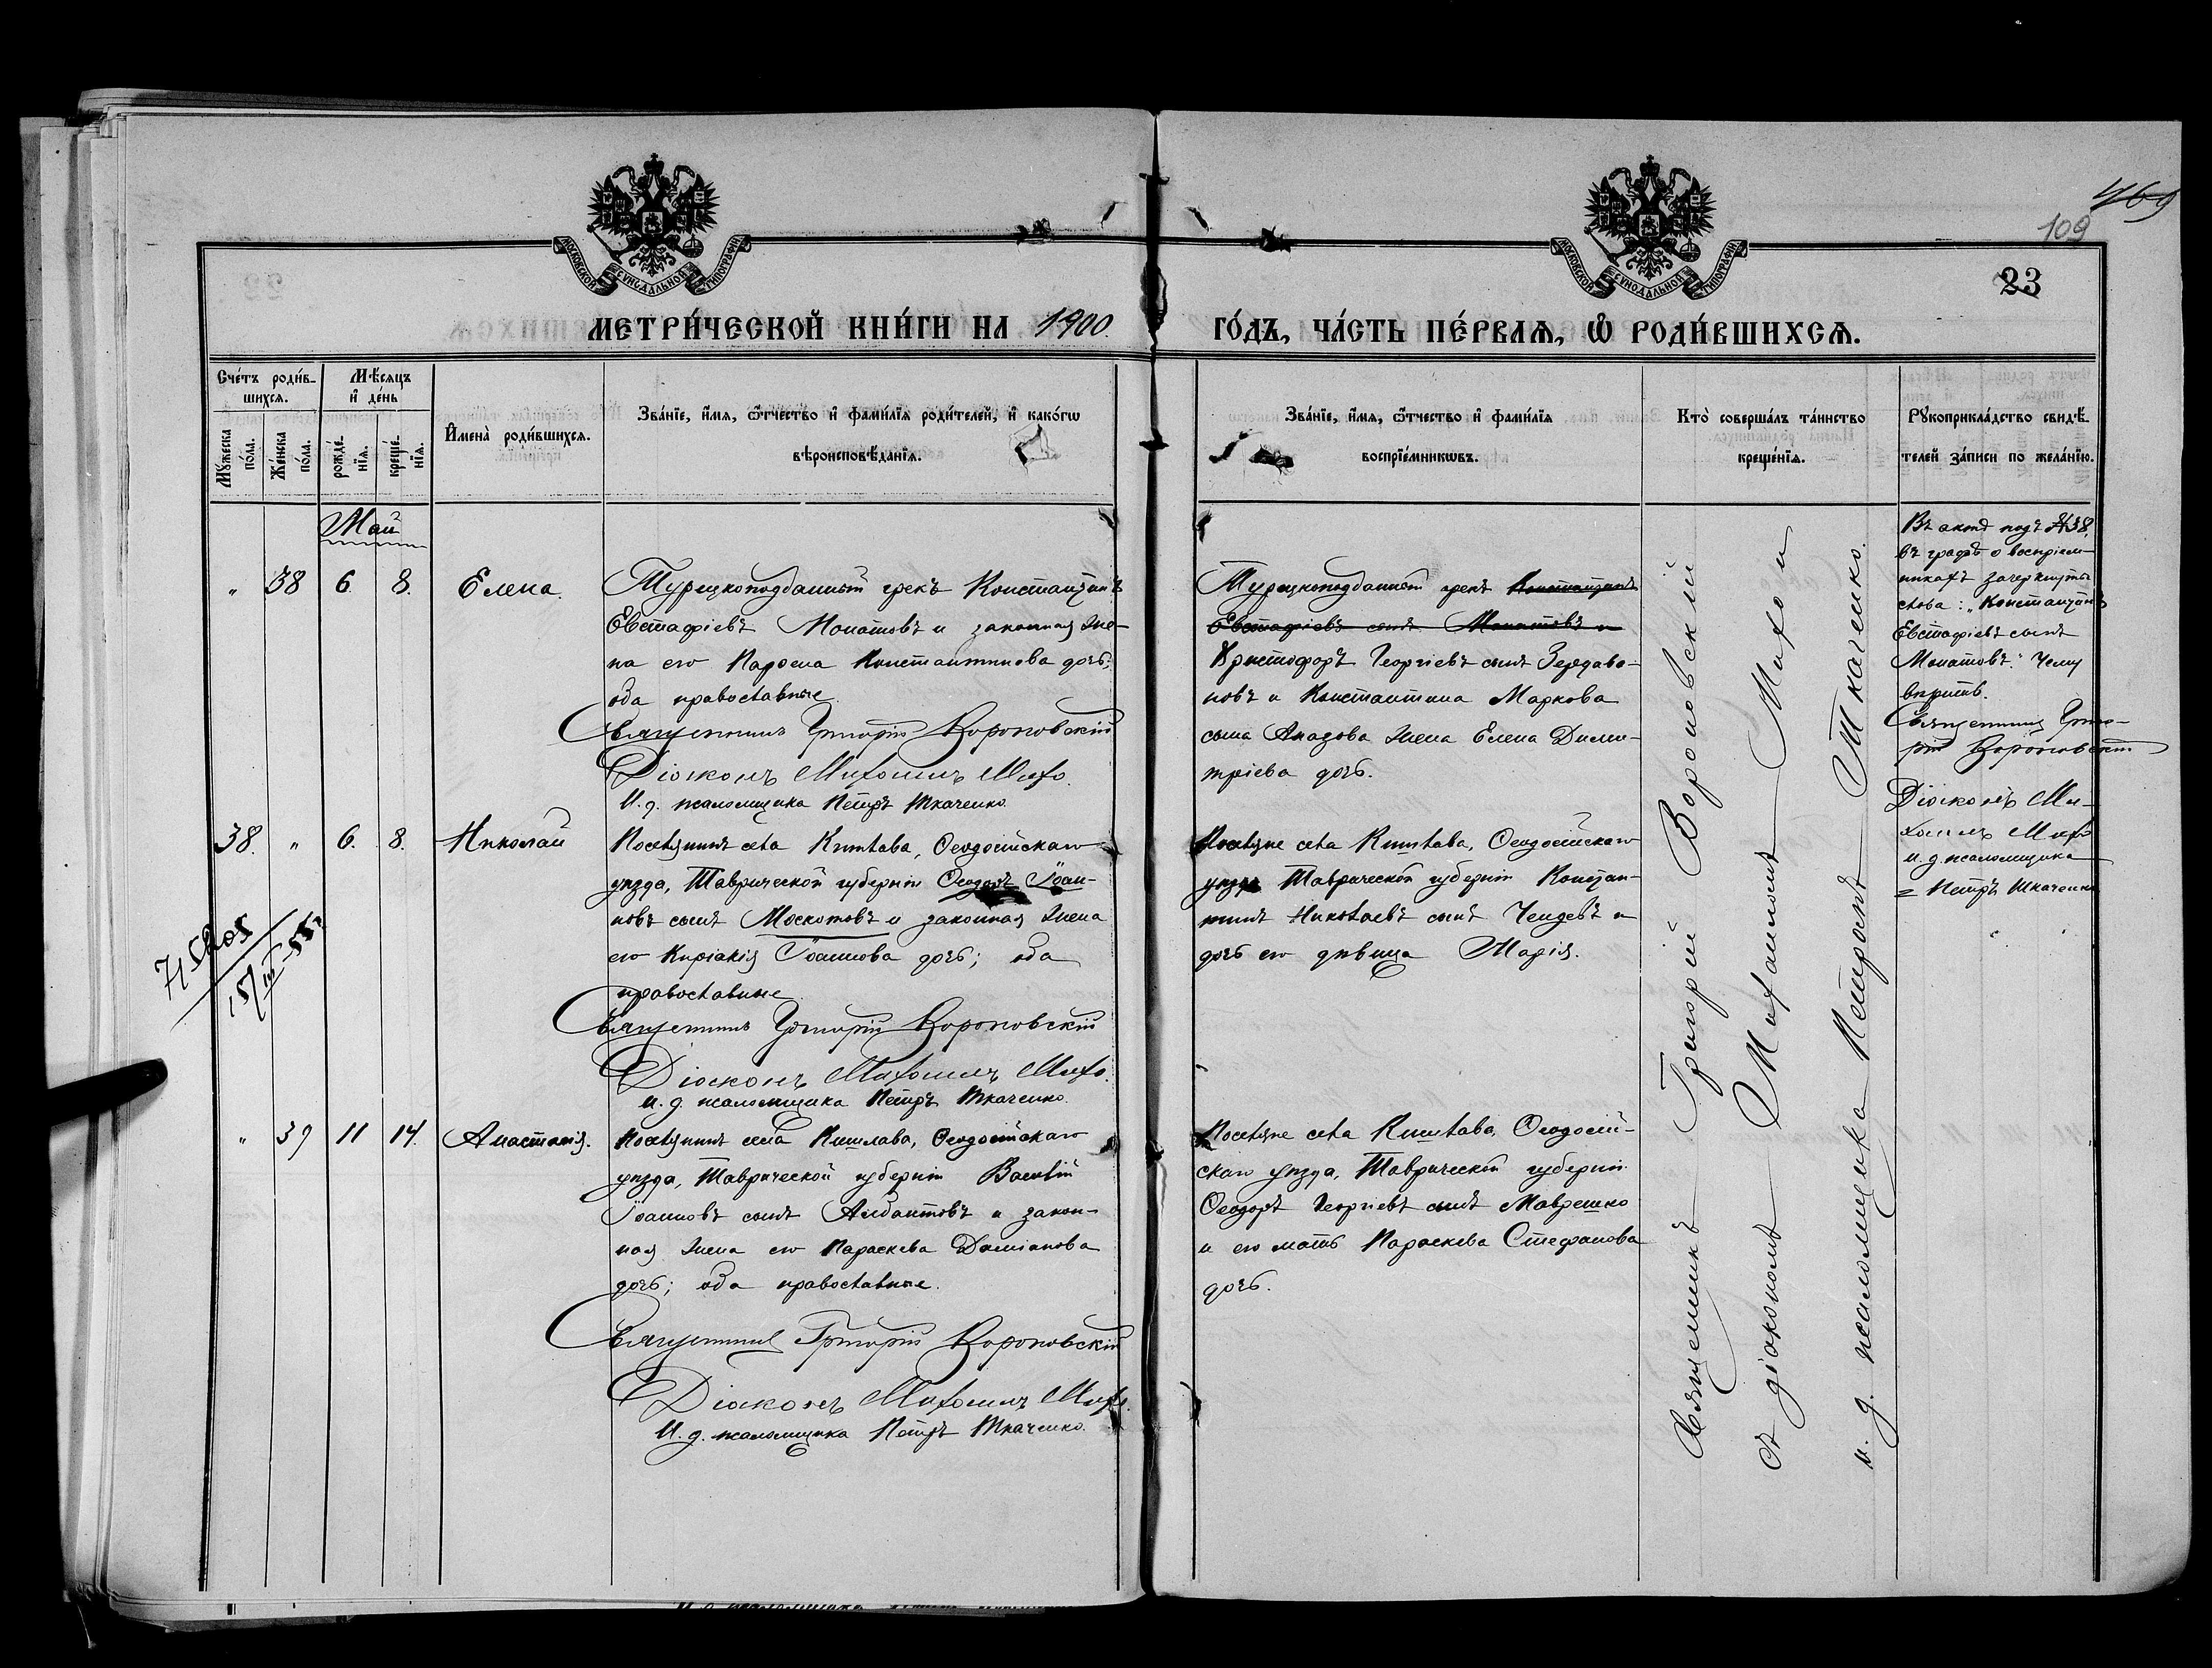 469
109
23
МЕТРИ́ЧЕСКОЙ КНИ́ГИ НА 1900.
ГО́ДЪ, ЧА́СТЬ ПЕ́РВАѦ, Ѡ҆ РОДИ́ВШИХСѦ.
Сче́тъ роди́в-
шихсѧ.
Мѣ́сѧцъ
и҆ де́нь
Мꙋ́жеска
по́ла.
Же́нска
по́ла.
рожде́-
нїѧ.
креще́-
нїѧ.
И҆мена̀ роди́вшихсѧ.
Зва́нїе, и҆́мѧ, ѻ҆́тчество и҆ фами́лїѧ роди́телей, и҆ како́гѡ
вѣроисповѣ́данїѧ.
Зва́нїе, и҆́мѧ, ѻ҆́тчество и҆ фами́лїѧ
воспрїе́мникѡвъ.
Кто̀ соверша́лъ та́инство
креще́нїѧ.
Рꙋкоприкла́дство свидѣ́-
телей за́писи по жела́нїю.
Май
" 38 6. 8. Елена.
Турецкоподданный грекъ Константинъ
Евстафіевъ Монатовъ и законная же-
на его Пароена Константинова дочь;
оба православные.
Священникъ Григорій Вороновскій
Діаконъ Михаилъ Михо.
И. д. псаломщика Петръ Ткаченко.
Турецкоподданный грекъ Константинъ
Евстафіевъ сынъ Монатовъ и
Христофоръ Георгіевъ сынъ Зердаво-
новъ и Константина Маркова
сына Анадова жена Елена Дими-
тріева дочь.
Въ актѣ подъ №38,
въ графѣ о воспріем-
никахъ зачеркнуты
слова: „Константинъ
Евстафіевъ сынъ
Монатовъ." Чему
вѣрить.
Священникъ Григо-
рій Вороновскій
Діаконъ Ми-
хаилъ Михо
и. д. псаломщика
Петръ Ткаченко
38. " 6. 8. Николай
Поселянинъ села Кишлава, Ѳеодосійскаго
уѣзда, Таврической губерніи Ѳеодоръ Іоан-
новъ сынъ Москотовъ и законная жена
его Киріакія Іоаннова дочь; оба
православные.
Священникъ Григорій Вороновскій
Діаконъ Михаилъ Михо.
И. д. псаломщика Петръ Ткаченко.
Поселяне села Кишлава, Ѳеодосійскаго
уѣзда Таврической губерніи Констан-
тинъ Николаевъ сынъ Чендевъ и
дочь его дѣвица Марія.
" 39 11 14. Анастасія.
Поселянинъ села Кишлава, Ѳеодосійскаго
уѣзда, Таврической губерніи Василій
Іоанновъ сынъ Алдантовъ и закон-
ная жена его Параскева Даміанова
дочь; оба православные.
Священникъ Григорій Вороновскій
Діаконъ Михаилъ Михо.
И. д. псаломщика Петръ Ткаченко.
Поселяне села Кишлава, Ѳеодосій-
скаго уѣзда, Таврической губерніи
Ѳеодоръ Георгіевъ сынъ Маврешко
и его мать Параскева Стефанова
дочь.
Священникъ Григорій Вороновскій
съ діакономъ Михаиломъ Михо и
и. д. псаломщика Петромъ Ткаченко.